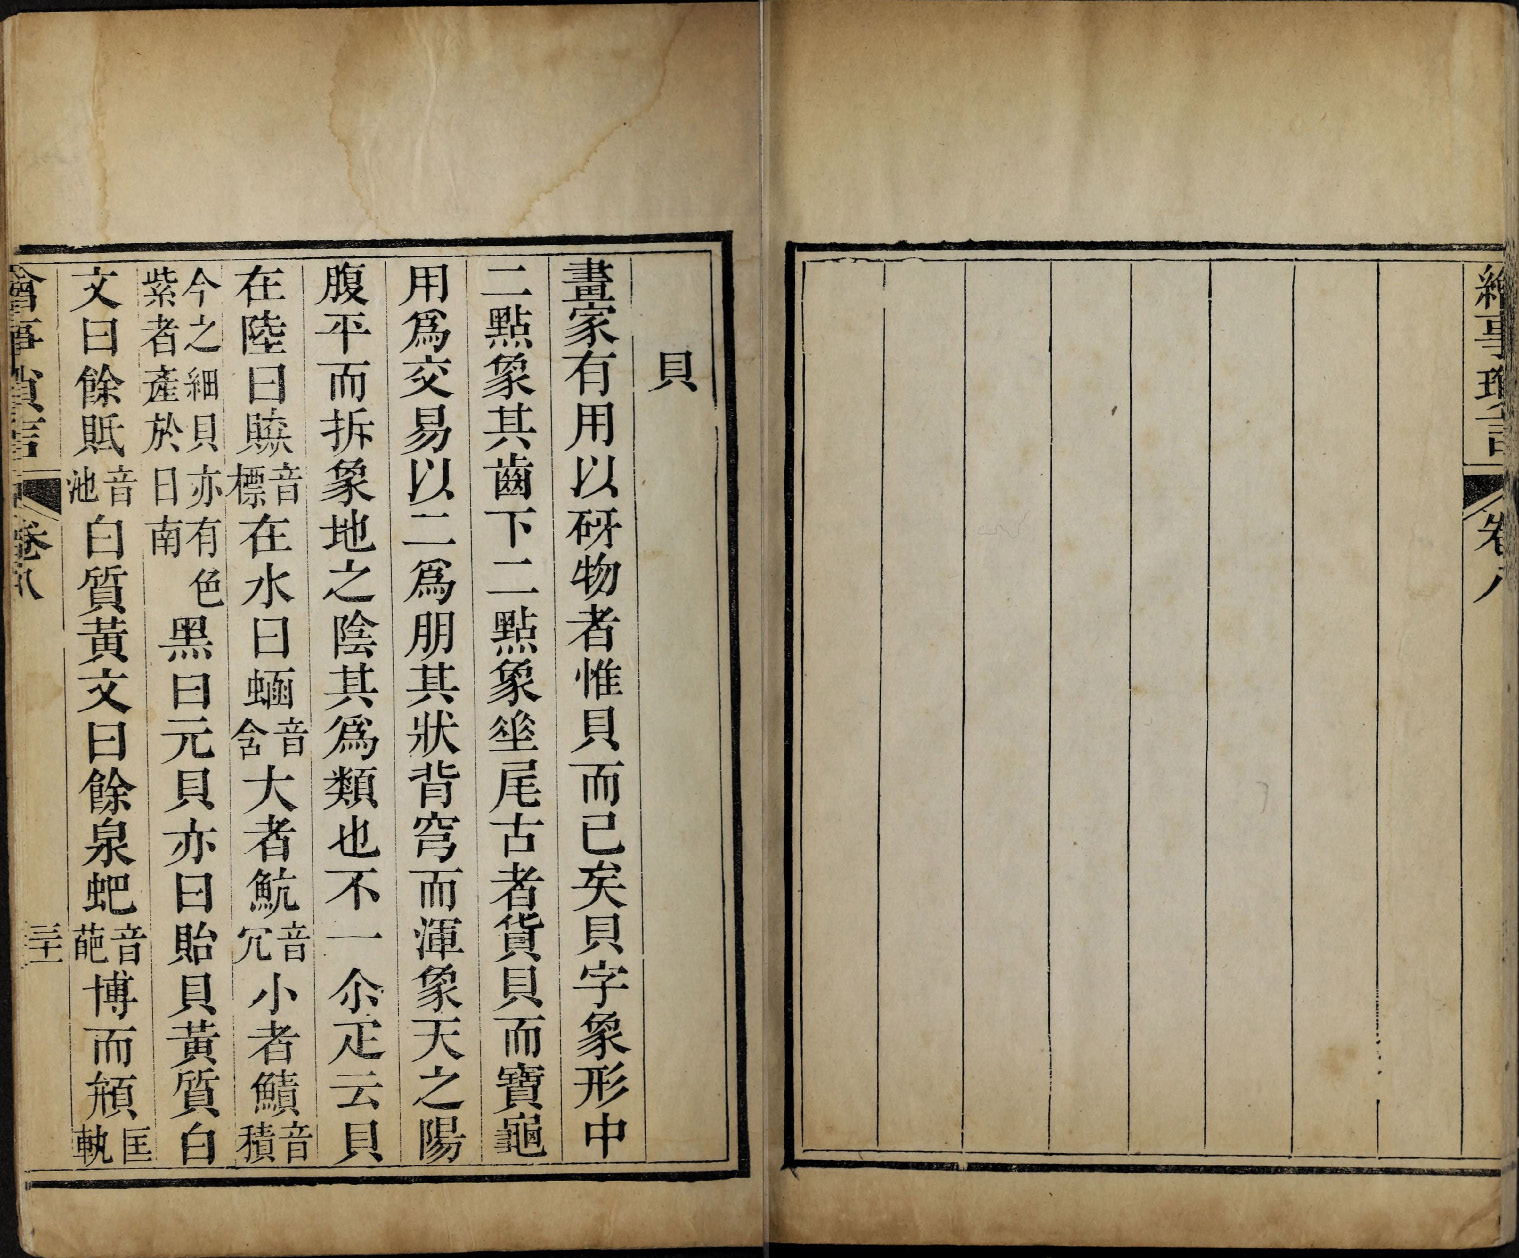 繪事瑣言
卷八
貝
畫家有用以砑物者惟貝而已矣貝字象形中
二點象其齒下二點象垂尾古者貨貝而寶龜
用爲交易以二爲朋其狀背穹而渾象天之陽
腹平而拆象地之陰其爲類也不一尒疋云貝
在陸曰贆音標在水曰蜬音含大者魧音冗小者鰿音積
今之細貝亦有色紫者產於日南黑曰元貝亦曰貽貝黃質白
文曰餘貾音池白質黃文曰餘泉蚆音葩博而頯匡軌
繪事瑣言
卷八